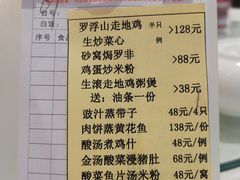 台号:
白饭:
序号 食品
罗浮山走地鸡 半只 >128元
生炒菜心 例
砂窝焗罗非 >88元
鸡蛋炒米粉
生滚走地鸡粥煲 >38元
送:油条一份
豉汁蒸带子 48元/4只
肉饼蒸黄花鱼 138元/份
酸汤煮鸡什 48元/例
金汤酸菜漫猪肚 68元/例
酸菜鱼片汤米粉 48元/窝